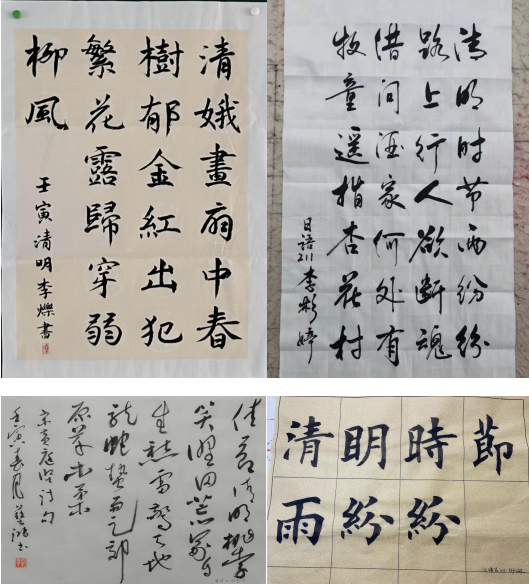 清娥畫扇中春
樹郁金紅出犯
繁花露歸穿弱
柳風
壬寅清明李爍書
清明时节雨纷纷
路上行人欲断魂
借问酒家何处有
牧童遥指杏花村
日語211李彬婷
佳节清明桃李
笑野田荒冢
生愁雷驚天地
龍蛇蟄雨足郊
原草木柔
宋黄庭坚诗句
壬寅春月
清明時節
雨紛紛